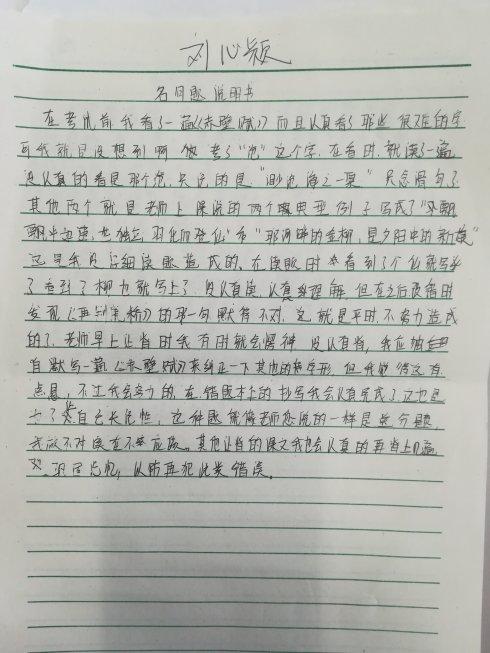 刘心颖
名句题说明书
在考试前我看了一遍《赤壁赋》而且认真看了那些很难的字
可我就是没想到啊 做 考了"沧"这个字,在看时,就读了一遍
没认真的看是那个沧,只记的是"渺沧海之一粟" 只念滑句了
其他两个就是老师上课说的两个典型例子写成了"飘
飘乎遗世独立,羽化而登仙"和"那河畔的金柳,是夕阳中的新娘"
这是我没仔细读题造成的,在读题时 看到了个仙就写
了 看到了柳力就写上了,没认真读,认真 理解,但在之后我看时
发现《再别康桥》的那一句默得不对,这就是平时不努力造成
的了,老师早上让背时我有时就会 没认真背,我应该
自默写一遍《赤壁赋》来纠正一下其他的 字形,但我 没有
点 ,不过我会努力的,在错题本上的抄写我会认真完成了这也是
为了 自己长记性,这种题就像老师您说的一样是送分题,
我放不对 实在不应该。其他让背的课文我也会认真的再背上几遍
巩固 ,以防再犯此类错误。